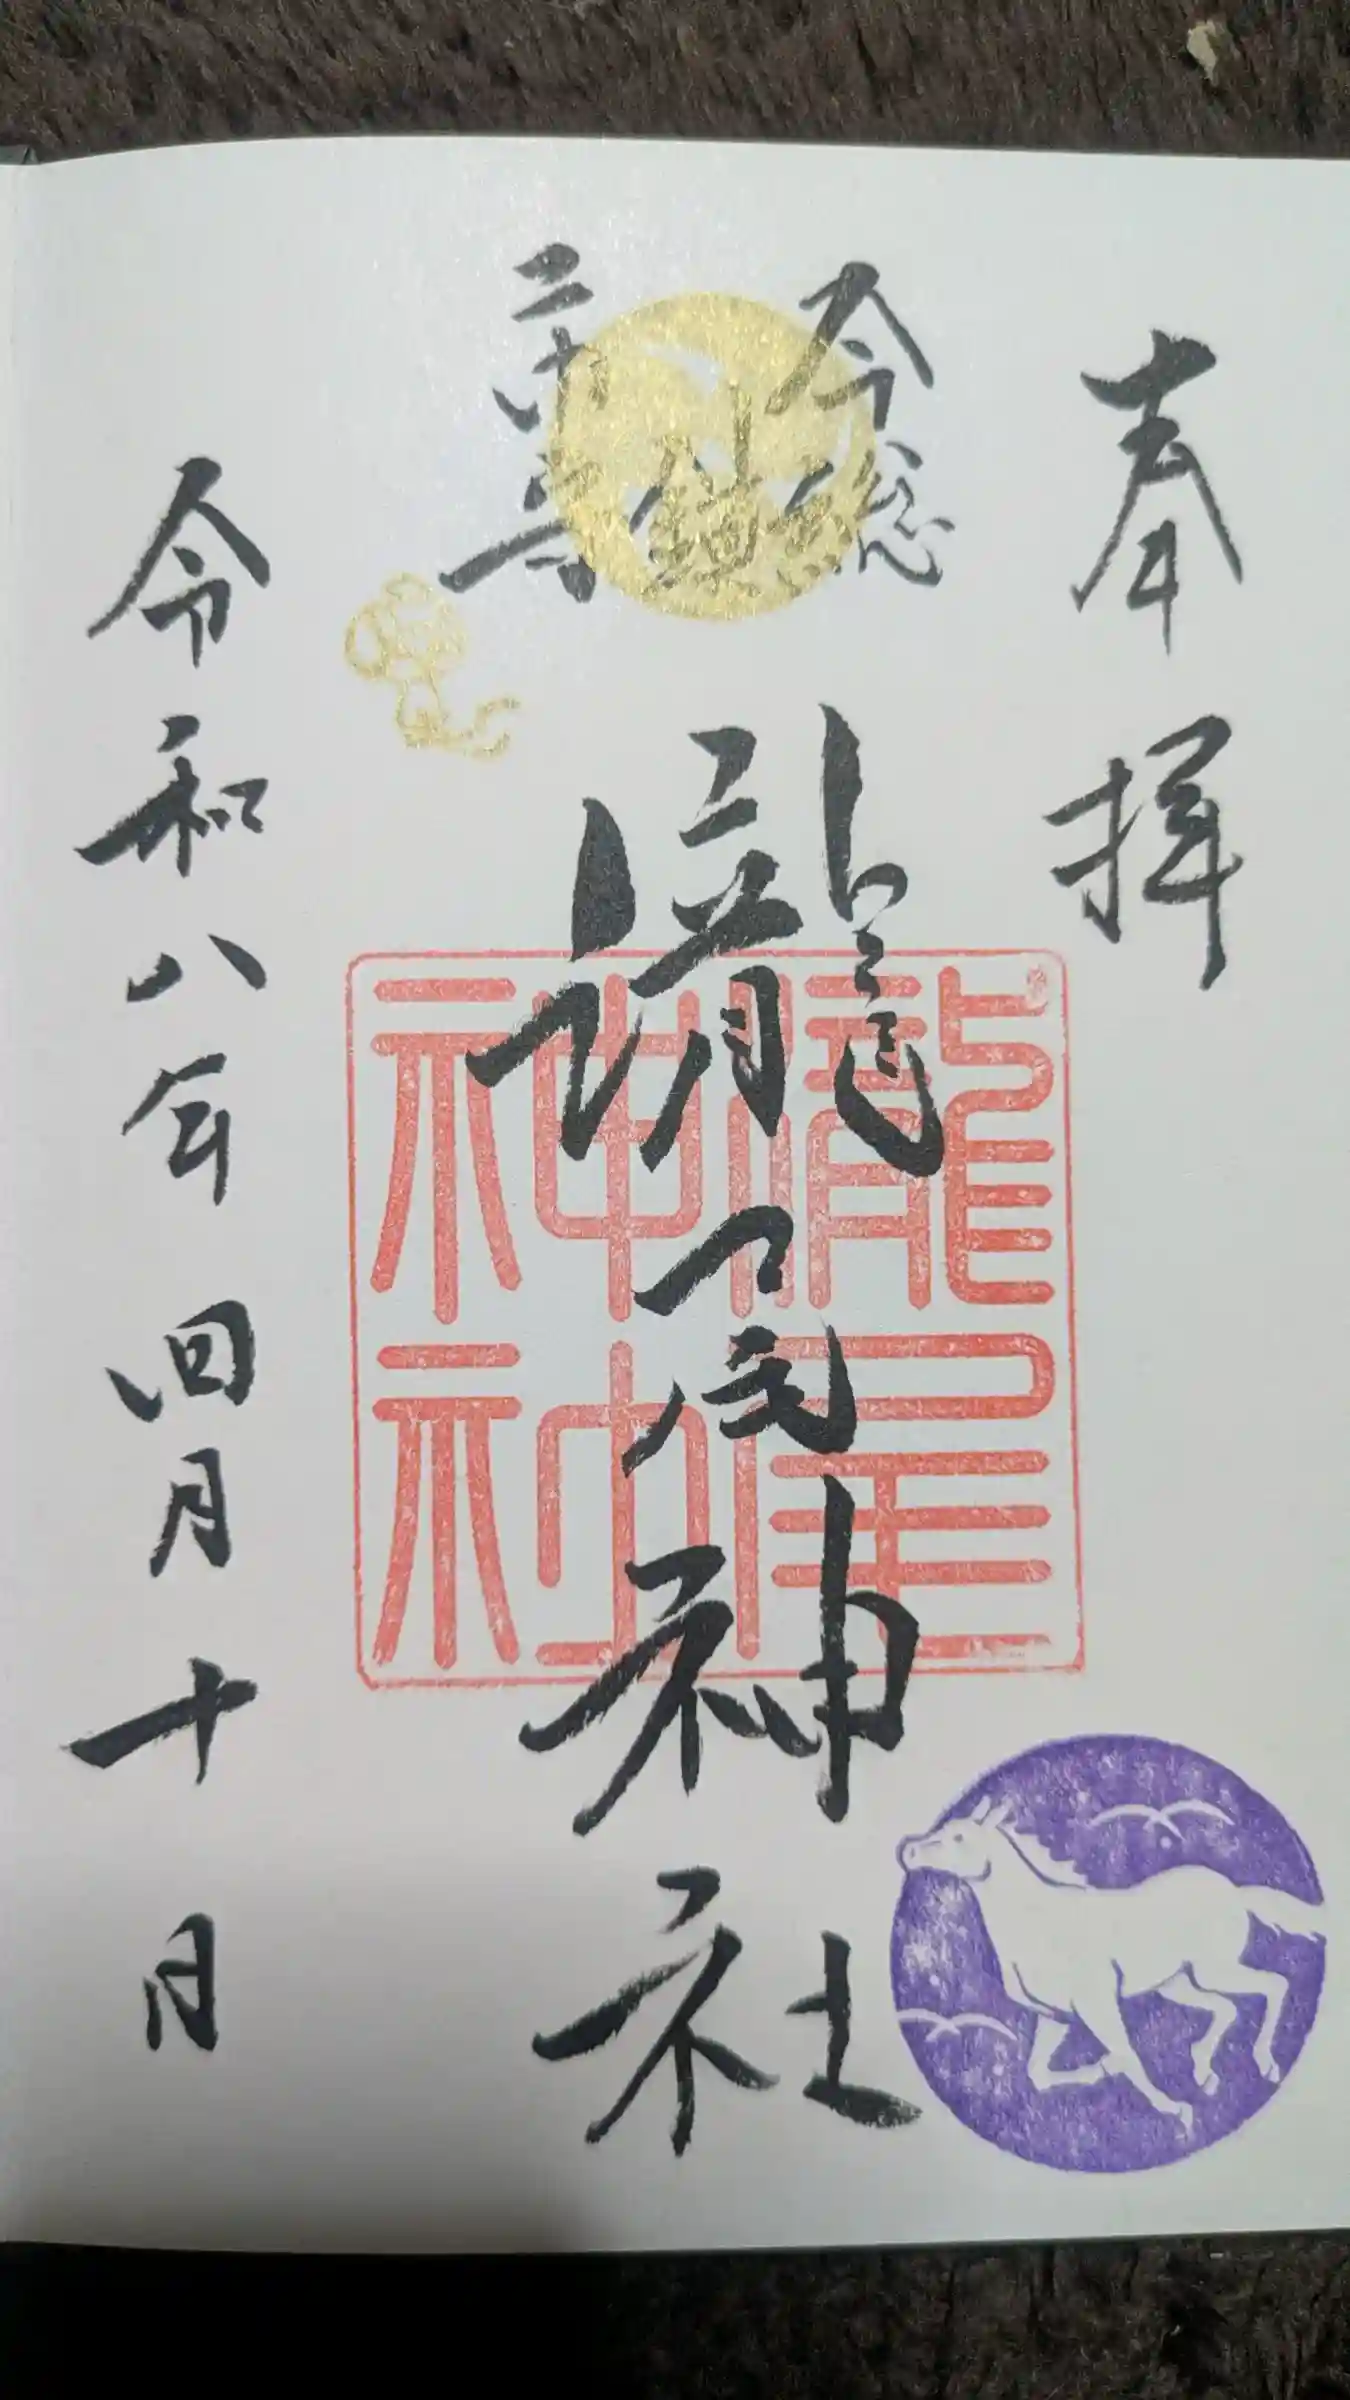 奉拝
今市
総鎮守
瀧尾神社
瀧尾神社
令和八年四月十日